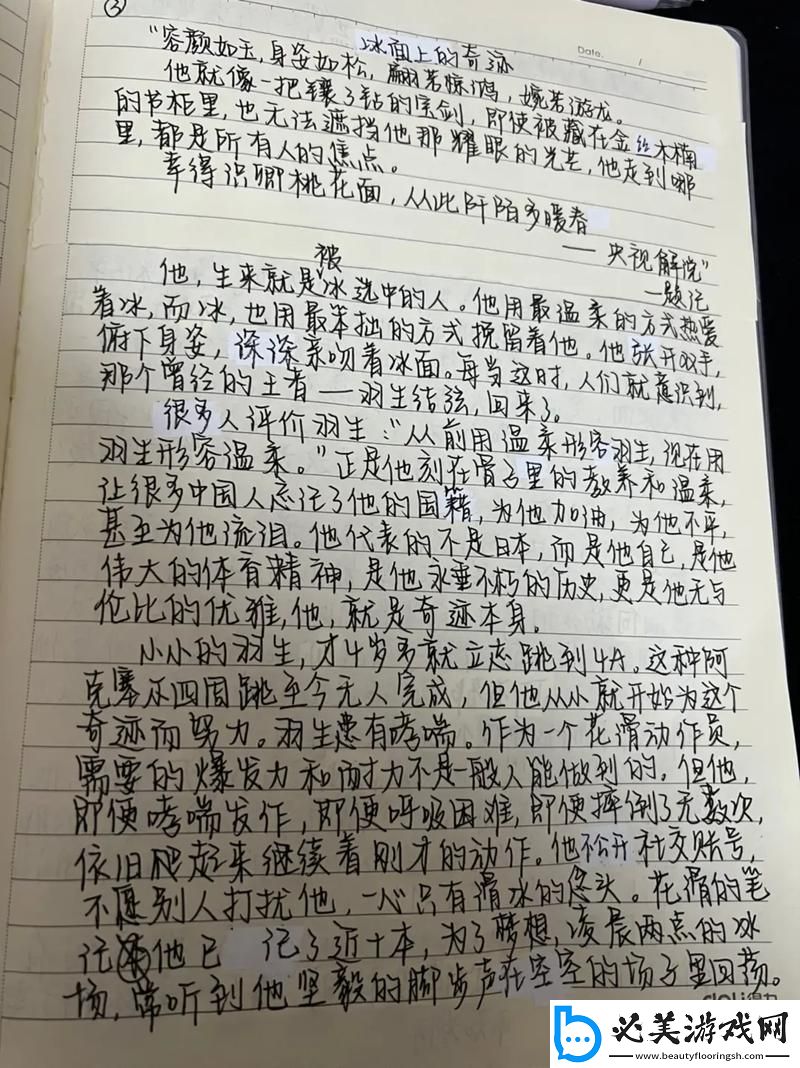 ③
冰面上的奇迹
Date. /
“容颜如玉,身姿如松,翩若惊鸿,婉若游龙。
他就像一把镶了钻的宝剑,即使被藏在金丝木楠
的书柜里,也无法遮挡他那耀眼的光芒,他走到哪
里,都是所有人的焦点。
幸得识卿桃花面,从此阡陌多暖春
— 央视解说”
—题记
他,生来就是被冰选中的人。他用最温柔的方式热爱
着冰,而冰,也用最笨拙的方式挽留着他。他张开双手,
俯下身姿,深深亲吻着冰面。每当这时,人们就意识到,
那个曾经的王者——羽生结弦,回来了。
很多人评价羽生:“从前用温柔形容羽生,现在用
羽生形容温柔。”正是他刻在骨子里的教养和温柔,
让很多中国人忘记了他的国籍,为他加油,为他不平,
甚至为他流泪。他代表的不是日本,而是他自己,是他
伟大的体育精神,是他永垂不朽的历史,更是他无与
伦比的优雅,他,就是奇迹本身。
小小的羽生,才4岁多就立志跳到4A。这种阿
克塞尔四周跳至今无人完成,但他从小就开始为这个
奇迹而努力。羽生患有哮喘。作为一个花滑动作员,
需要的爆发力和耐力不是一般人能做到的。但他,
即便哮喘发作,即便呼吸困难,即便摔倒了无数次,
依旧爬起来继续着刚才的动作。他不公开社交账号,
不愿别人打扰他,一心只有滑冰的念头。花滑的笔
记他已 记了近十本,为了梦想,凌晨两点的冰
场,常听到他坚毅的脚步声在空空的场子里回荡。
deli得力
必美游戏网
www.beautyflooringsh.com